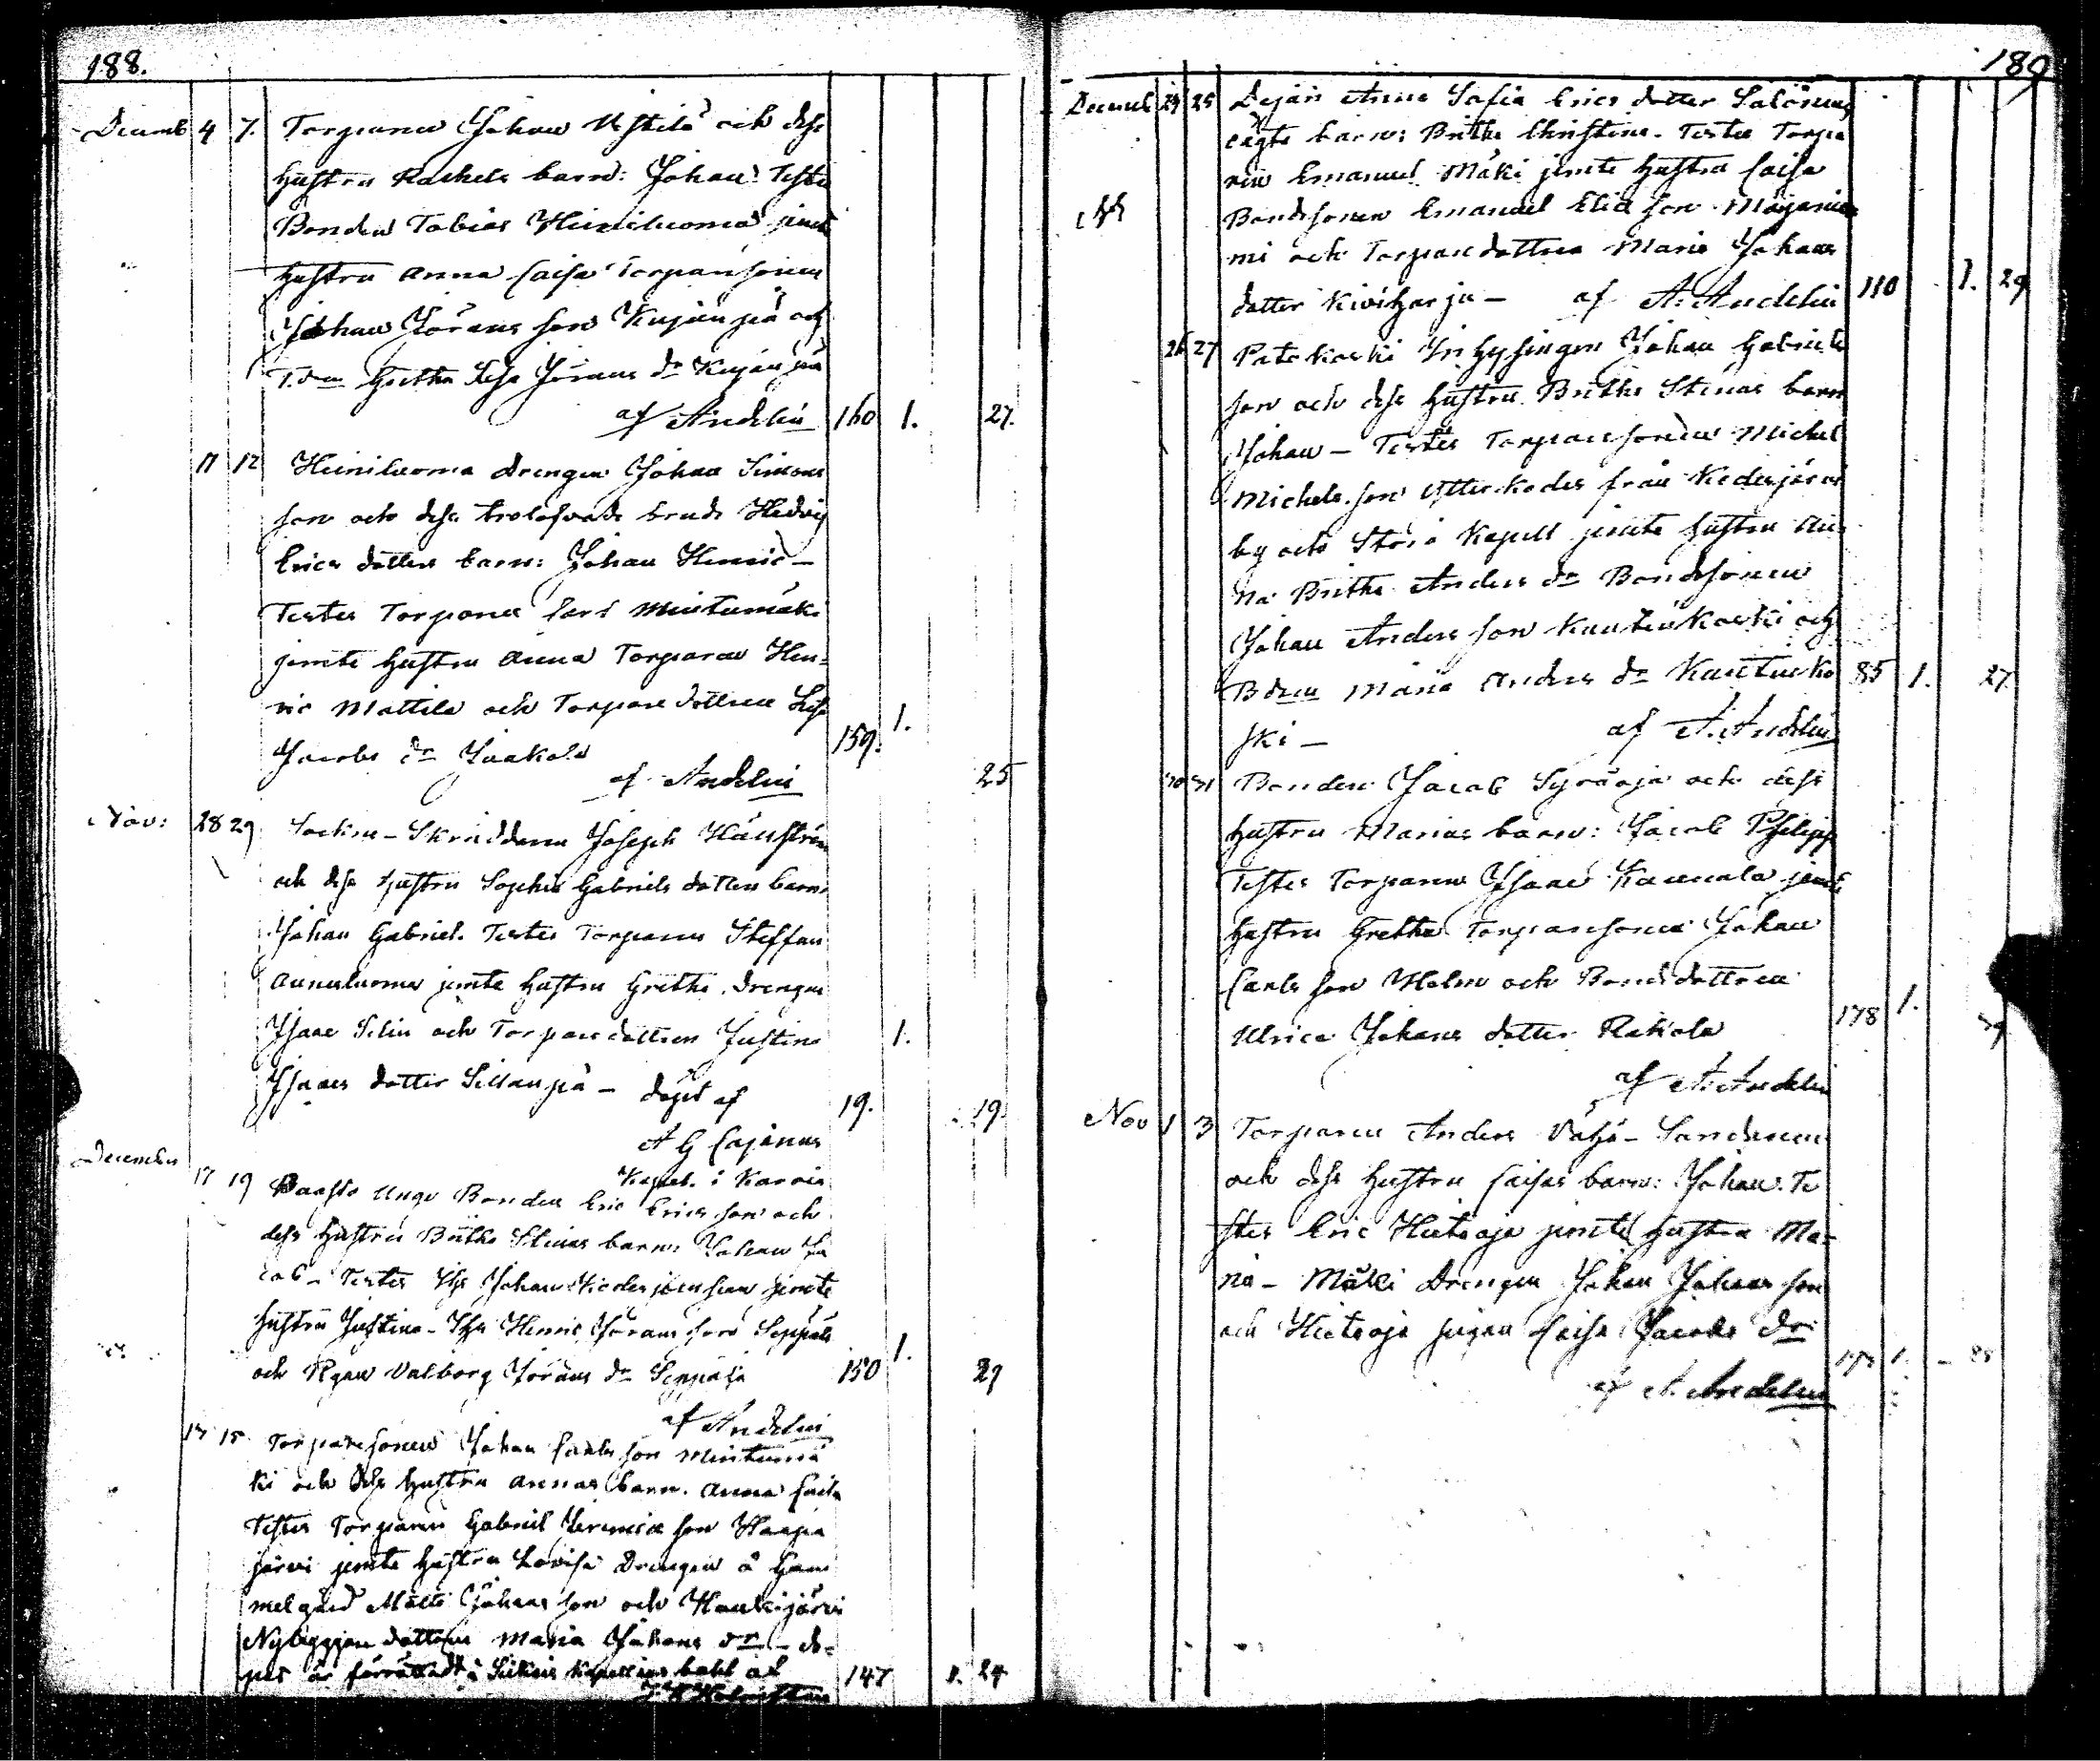 188.
Decemb 4 7. Torparen Johan Ristilä och dess
hustru Rachels barn: Johan Testes
Bonden Tobias Heiniluoma jemte
hustru Anna Caisa Torparesonen
Johan Jörans son Kujanpä och
T.d:n Gretha Lisa Jörans dr Kujanpä
af Andelin 160 1. 27.
11 12 Heiniluoma drengen Johan Simons
son och dess trolofvade brud Hedvig
Erics dotters barn: Johan Henric –
Testes Torparen Carl Mintumäki
jemte hustru Anna Torparen Hen-
ric Mattila och Torpare dottren Lisa
Jacobs dr Jaakola 159. 1.
af Andelin 25
Nov: 28 29 Sockne-Skräddaren Joseph
och dess hustru Sophia Gabriels dotters barn:
Johan Gabriel. Testes Torparen Steffan
Annaluoma jemte hustru Gretha. Drengen
Isaac Selin och Torpare dottren Justina 1.
Isaacs dotter Sillanpä – döpt af
19. 19.
A G Cajanus
Kapel. i Karvia
December 17 19 Unge Bonden Eric Erics son och
dess hustru Britha Stinas barn: Johan Ja
cob – Testes Johan jemte
hustru Justina – Henric Jörans son Seppälä
och Pigan Valborg Jörans dr Seppälä 150 1. 29
af Andelin
15 Torparesonen Johan Carls son Mintumä
ki och dess hustru Annas barn. Anna Caisa
Testes Torparen Gabriel Jeremiæ son Haapa
järvi jemte hustru Lovisa Drengen å Gam
melgård Matts Johans son och Haukijärvi
Nybyggare dottren Maria Johans dr – do-
pet är förrättadt i Kapell af 147 1. 24
189
Decemb 24 25 Pejan Anna Sofia Erics dotter
oägta barn: Britha Christina. Testes Torpa
ren Emanuel Mäki jemte hustru Caisa
Bondesonen Emanuel Eliæ son
mi och Torpare dottren Maria Johans
dotter Kiviharju – af A. Andelin 110 1. 29
26 27 Patokoski Inhysingen Johan Gabriels
son och dess hustru Britha Stinas barn
Johan – Testes Torparesonen Michel
Michels son från
by och Storå Kapell jemte hustru An
na Britha Anders dr Bondesonen
Johan Anders son och
Bd:n Maria Anders dr 85 1. 27.
ski – af A. Andelin
30 31 Bonden Jacob Syräoja och dess
hustru Marias barn: Jacob Philipp
Testes Torparen Isaac jemte
hustru Gretha Torparesonen Johan
Carls son Holm och Bondedottren
Ulrica Johans dotter Rakola 178 1. 29
af A. Andelin
Nov 1 3 Torparen Anders
och dess hustru Caisas barn: Johan. Te
stes Eric Hietaoja jemte hustru Ma-
ria – Mäki Drengen Johan Johans son
och Hietaoja pigan Caisa Jacobs dr
1.
af A. Andelin